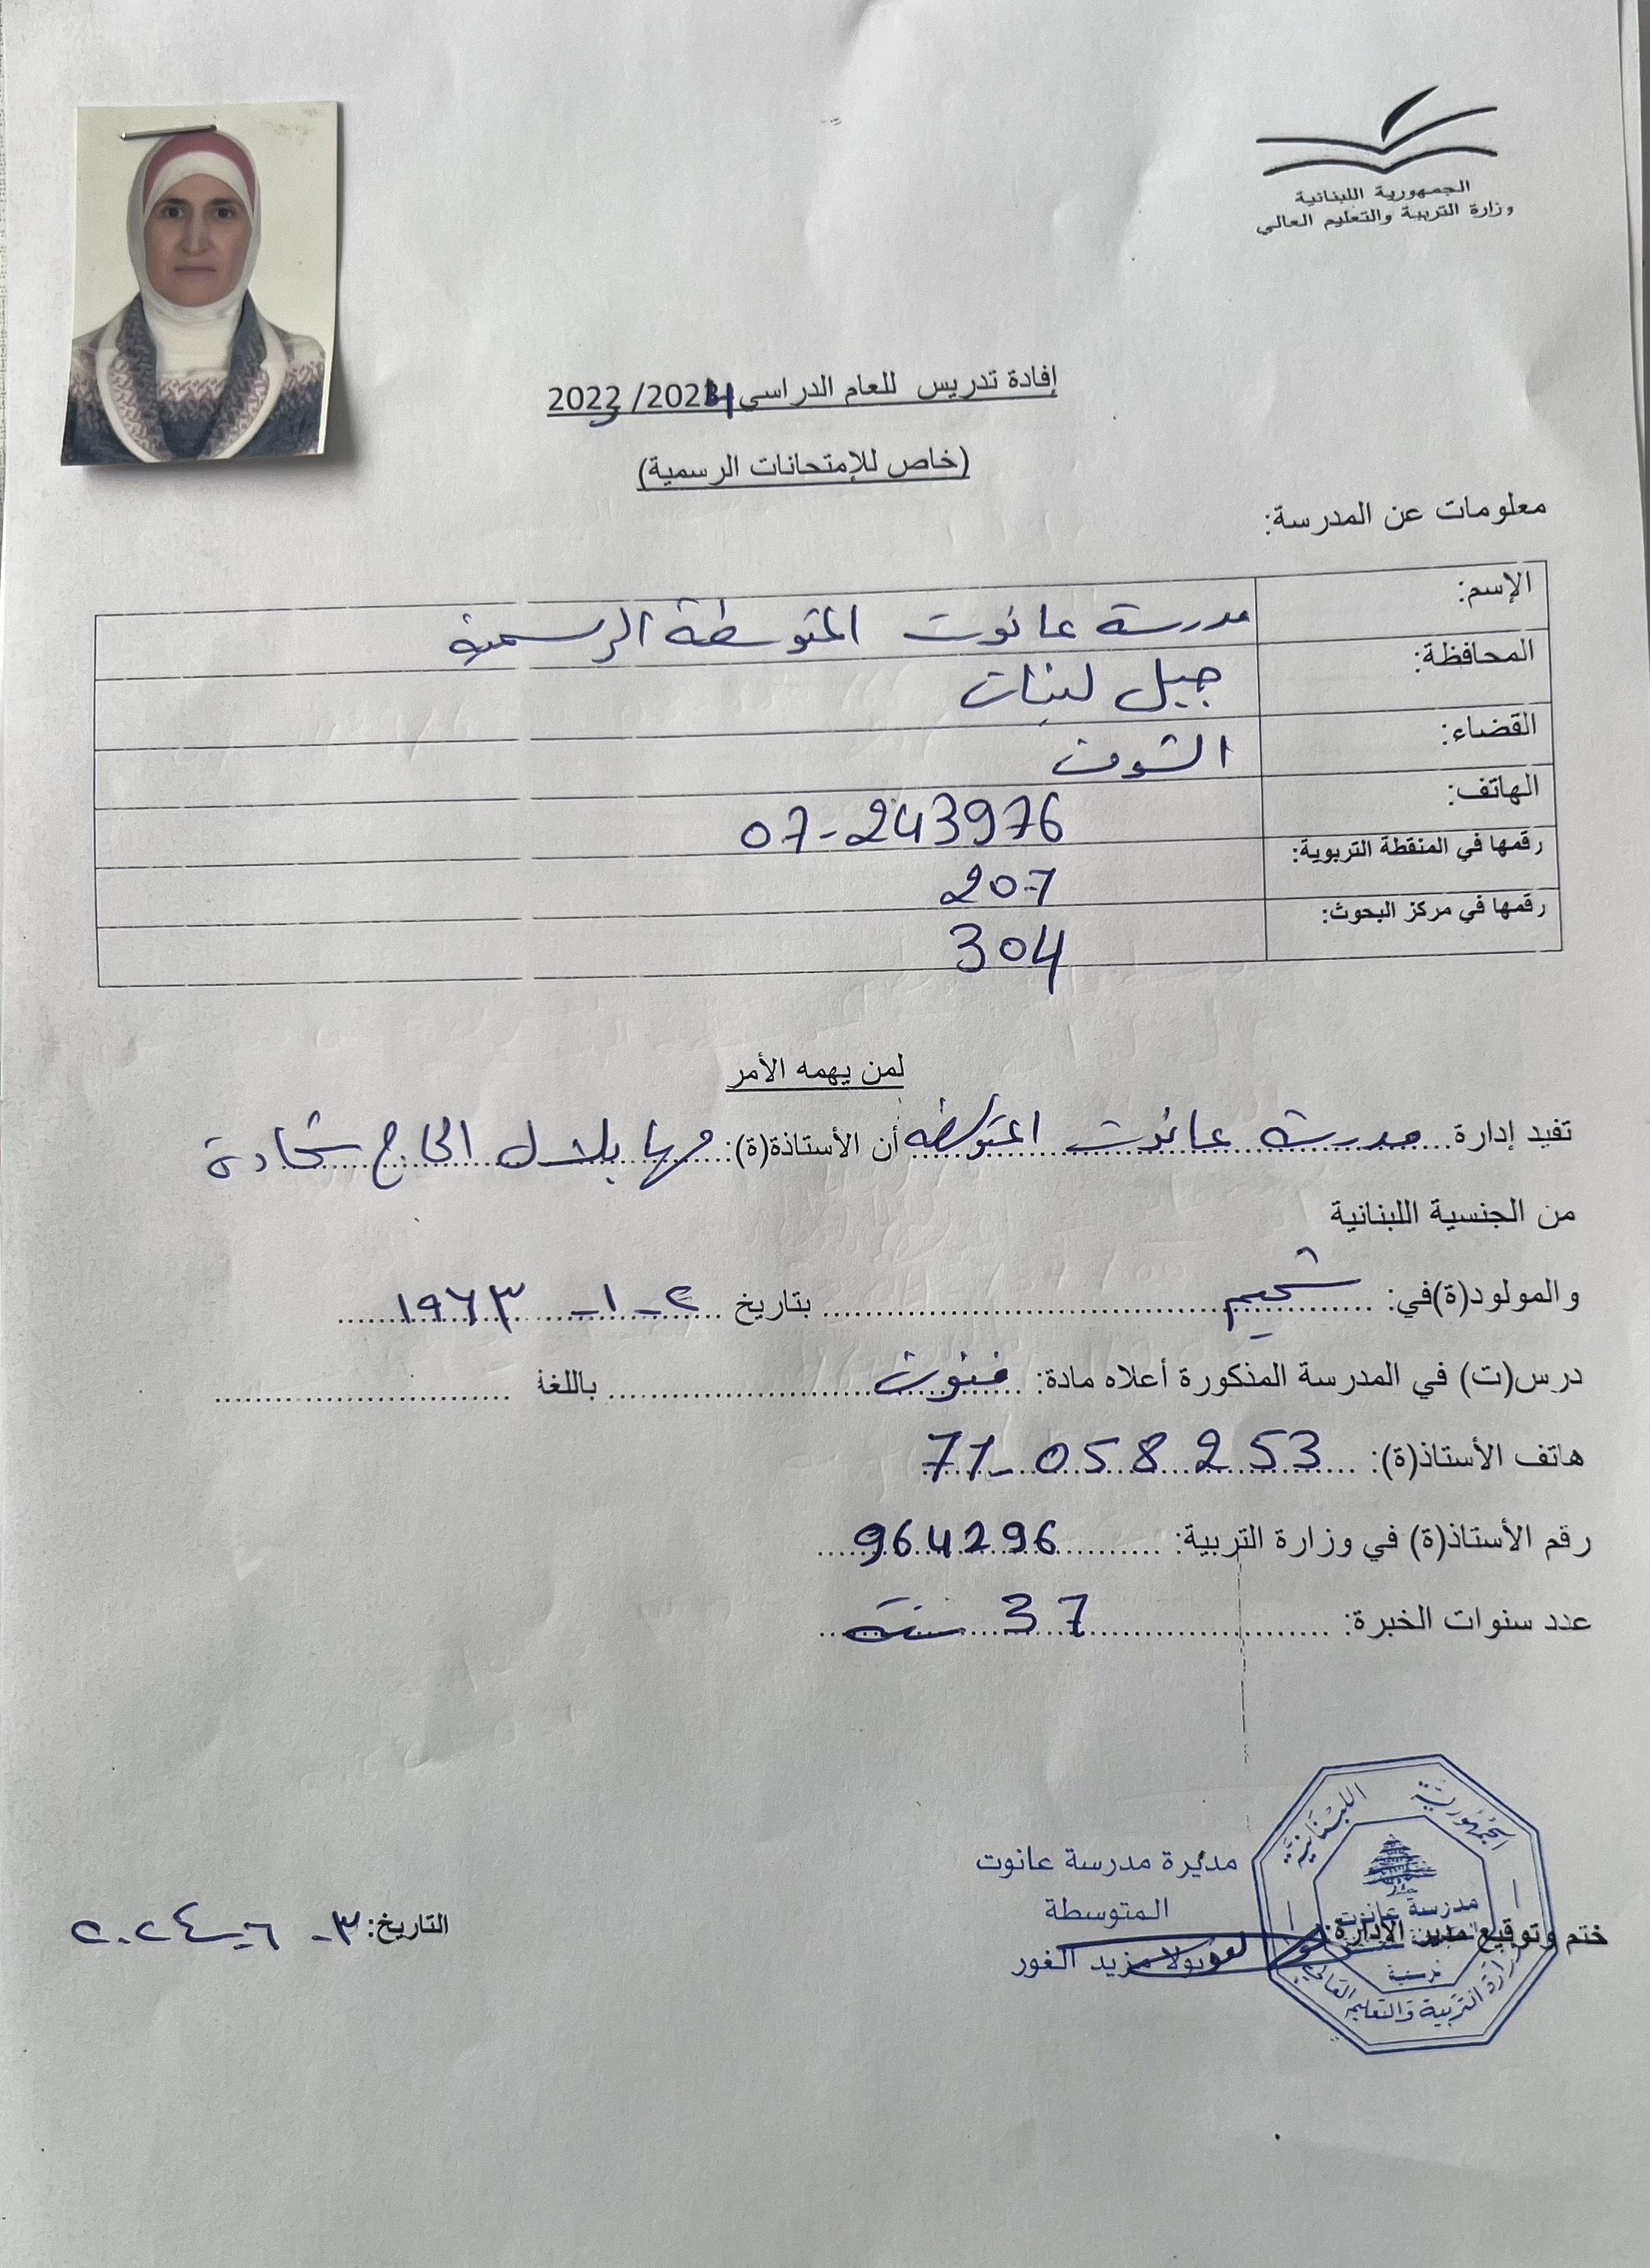 الجمهورية اللبنانية
وزارة التربية والتعليم العالي
إفادة تدريس للعام الدراسي 2024/2023
(خاص للإمتحانات الرسمية)
معلومات عن المدرسة:
الإسم: مدرسة عانوت المتوسطة الرسمية
المحافظة: جبل لبنان
القضاء: الشوف
الهاتف: 07-243976
رقمها في المنقطة التربوية: 207
رقمها في مركز البحوث: 304
لمن يهمه الأمر
تفيد إدارة مدرسة عانوت المتوسطة أن الأستاذة(ة): مها بلال الحاج شحادة
من الجنسية اللبنانية
والمولود(ة)في: شحيم بتاريخ ٢-١-١٩٦٣
درس(ت) في المدرسة المذكورة أعلاه مادة: فنون باللغة
هاتف الأستاذ(ة): 71-058253
رقم الأستاذ(ة) في وزارة التربية: 964296
عدد سنوات الخبرة: 37 سنة
ختم وتوقيع مدير الادارة:
مديرة مدرسة عانوت
المتوسطة
مزيد الغور
التاريخ: ٣-٦-٢٠٢٤
الجمهورية اللبنانية
مدرسة عانوت
وزارة التربية والتعليم العالي